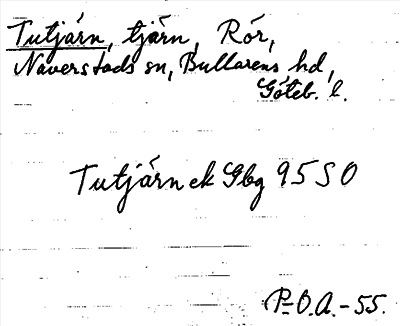 Tutjärn, tjärn, Rör,
Naverstads sn, Bullarens hd,
Göteb. l.
Tutjärn ek Gbg 95 SO
P-O.A.-55.